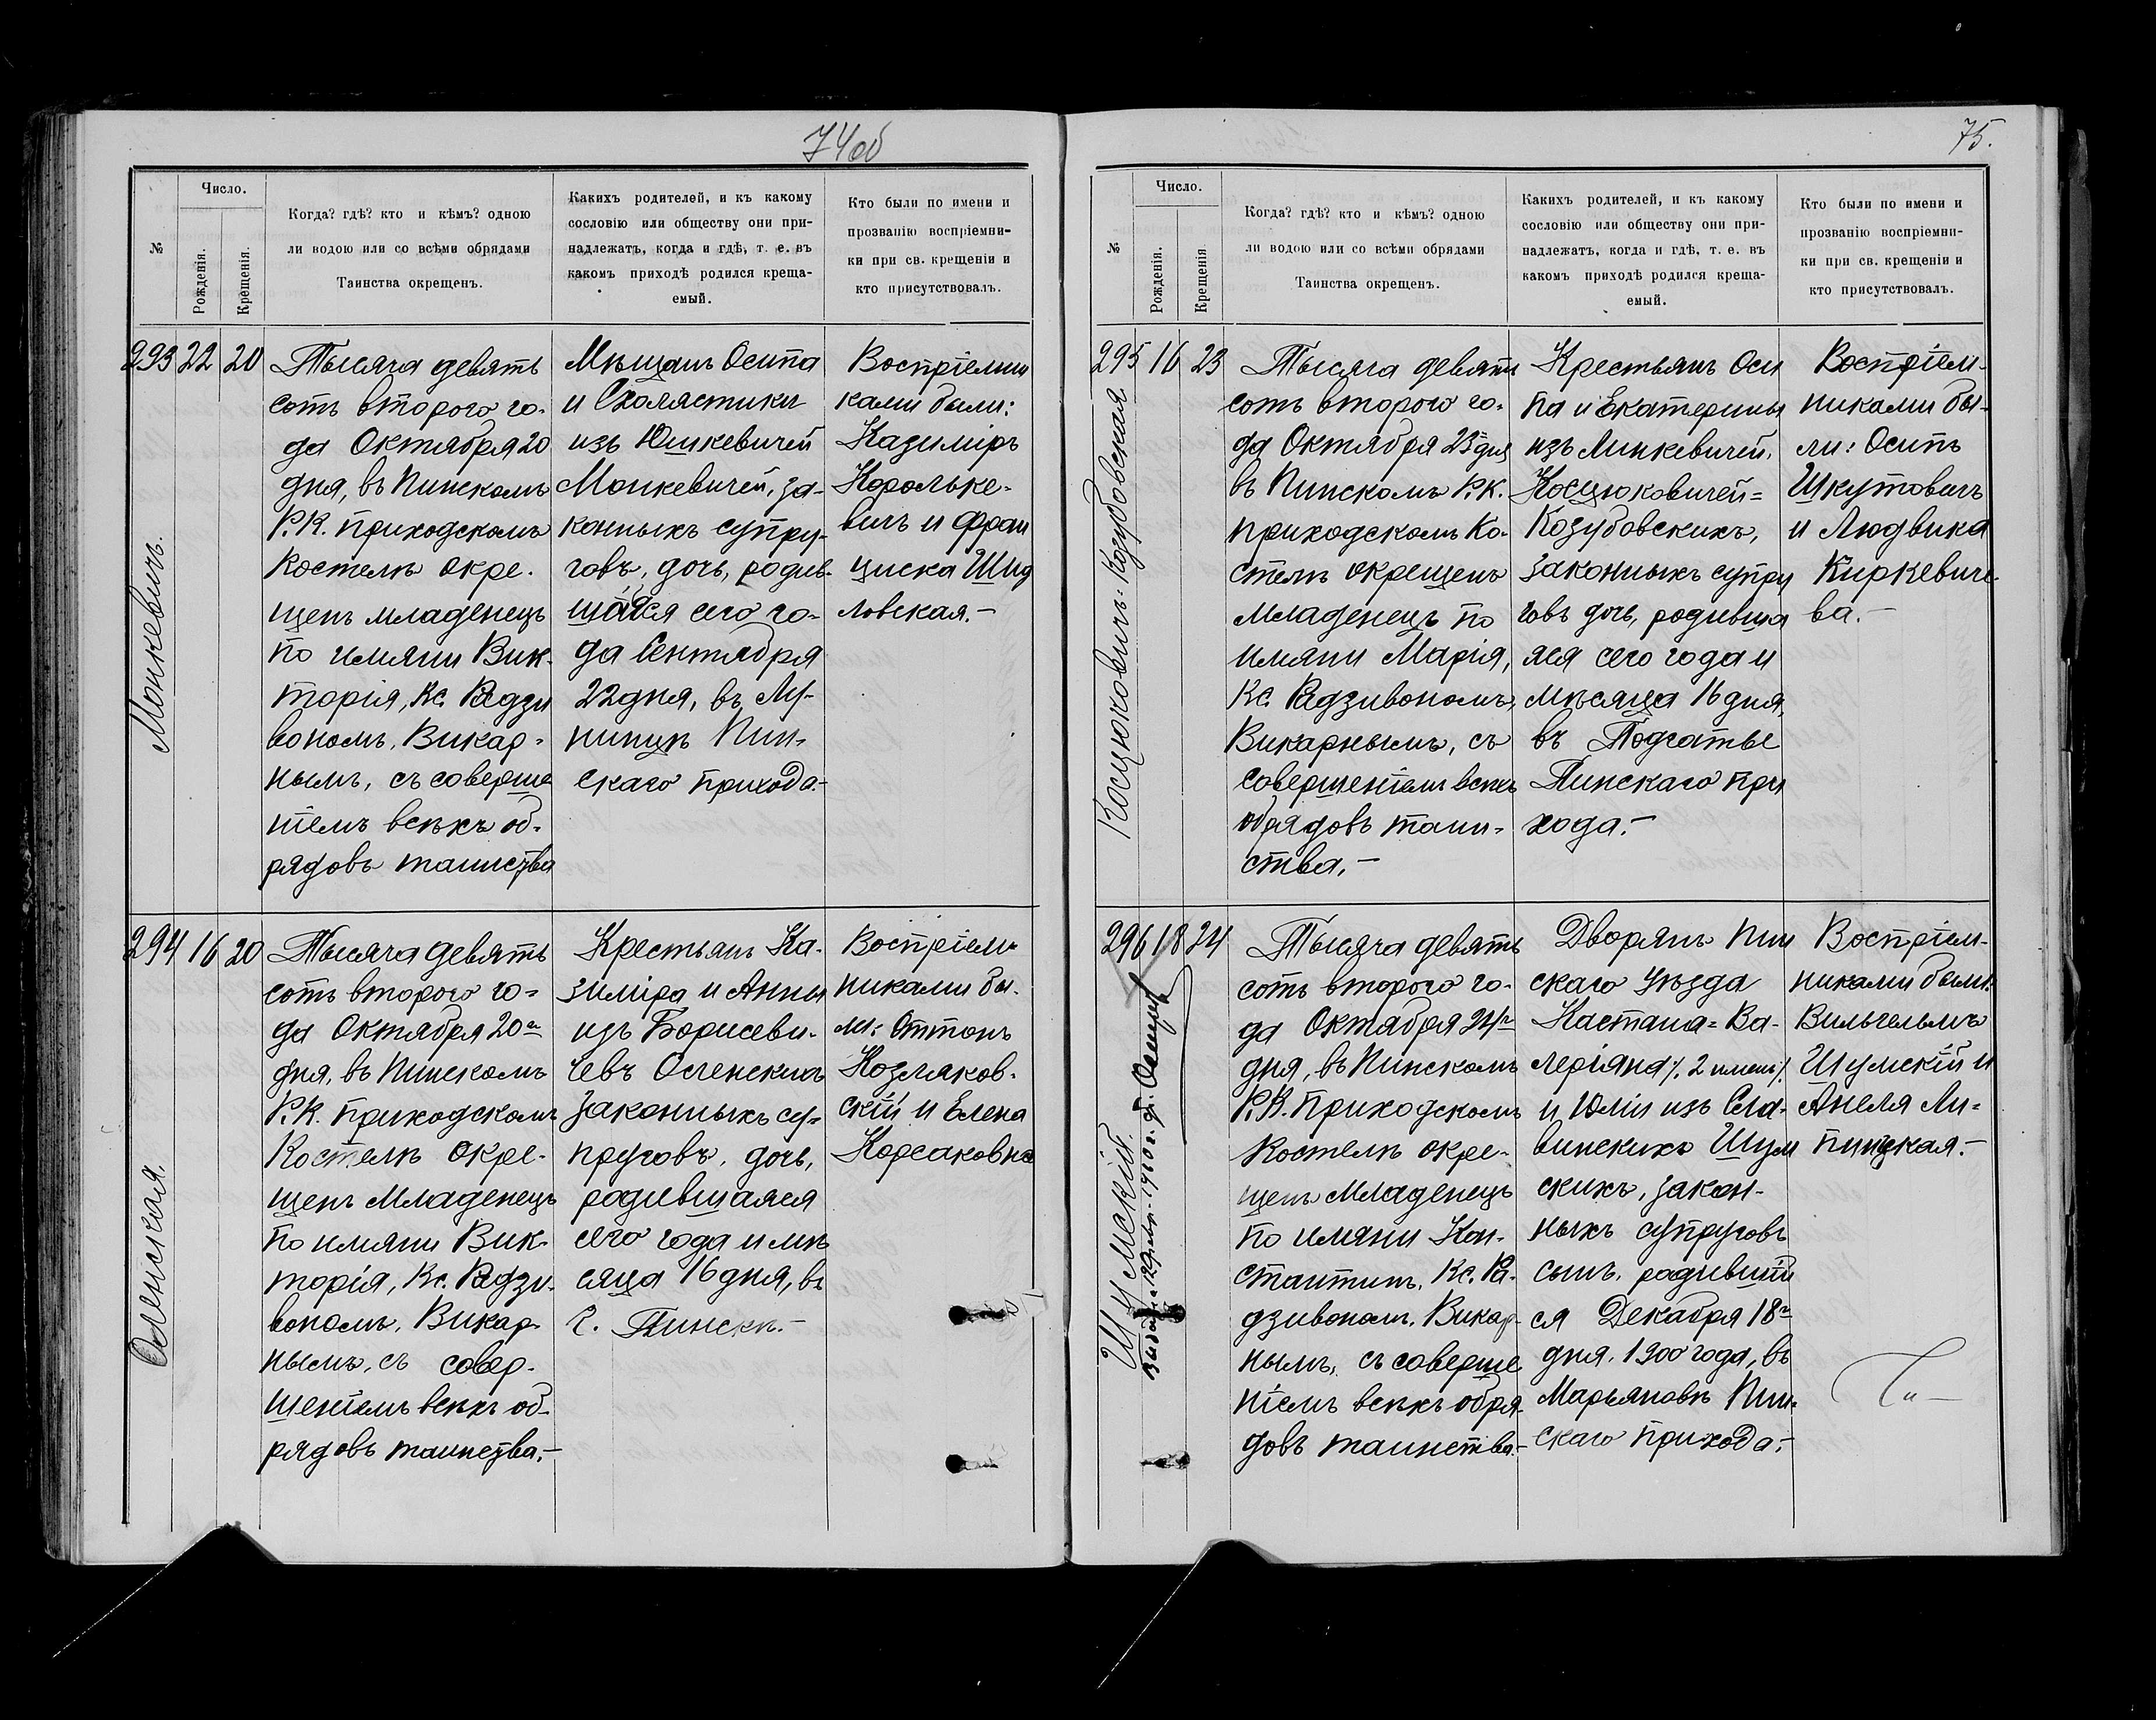 74об
№
Число.
Рожденія.
Крещенія.
Когда? гдѣ? кто и кѣмъ? одною
ли водою или со всѣми обрядами
Таинства окрещенъ.
Какихъ родителей, и къ какому
сословію или обществу они при-
надлежатъ, когда и гдѣ, т. е. въ
какомъ приходѣ родился креща-
емый.
Кто были по имени и
прозванію воспріемни-
ки при св. крещеніи и
кто присутствовалъ.
Монкевичъ.
293 22 20
Тысяча девять
сотъ второго го-
да Октября 20
дня, въ Пинскомъ
Р.К. приходскомъ
Костелѣ окре-
щенъ младенецъ
по имяни Вик-
торія, Кс. Радзи
вономъ, Викар-
нымъ, съ соверше
ніемъ всѣхъ об-
рядовъ таинства
Мѣщанъ Осипа
и Схолястики
изъ Юшкевичей
Монкевичей, за-
конныхъ супру-
говъ, дочь, родив-
шаяся сего го-
да Сентября
22 дня, въ Лу-
нинцѣ Пин-
скаго прихода.-
Воспріемни
ками были:
Казиміръ
Королькe-
вичъ и Фран
циска Шид
ловская.-
Оленская.
294 16 20
Тысяча девять
сотъ второго го-
да Октября 20го
дня, въ Пинскомъ
Р.К. приходскомъ
Костелѣ окре-
щенъ Младенецъ
по имяни Вик-
торія, Кс. Радзи-
вономъ, Викар-
нымъ, съ совер-
шеніемъ всѣхъ об-
рядовъ таинства.-
Крестьянъ Ка-
зиміра и Анны
изъ Борисеви-
чевъ Оленскихъ
законныхъ су-
пруговъ, дочь,
родившаяся
сего года и мѣ
сяца 16 дня, въ
г. Пинскѣ.-
Воспріем-
никами бы-
ли: Оттонъ
Козляков-
скій и Елена
Корсаковна
75.
№
Число.
Рожденія.
Крещенія
Когда? гдѣ? кто и кѣмъ? одною
ли водою или со всѣми обрядами
Таинства окрещенъ.
Какихъ родителей, и къ какому
сословію или обществу они при-
надлежатъ, когда и гдѣ, т. е. въ
какомъ приходѣ родился креща-
емый.
Кто были по имени и
прозванію воспріемни-
ки при св. крещеніи и
кто присутствовалъ.
Косцюковичъ-Козубовская
295 16 23
Тысяча девять
сотъ второго го-
да Октября 23го дня
въ Пинскомъ Р.К.
приходскомъ Ко-
стелѣ окрещенъ
младенецъ по
имяни Марія,
Кс. Радзивономъ,
Викарнымъ, съ
совершеніемъ всѣхъ
обрядовъ таин-
ства.-
Крестьянъ Оси
па и Екатерины
изъ Минкевичей,
Косцюковичей=
Козубовскихъ,
законныхъ супру
говъ дочь, родивша
яся сего года и
мѣсяца 16 дня,
въ Подгатье
Пинскаго при
хода.-
Воспріем-
никами бы-
ли: Осипъ
Шкутовичъ
и Людвика
Киркевиче-
ва.-
Шумскій.
296 18 24
Тысяча девять
сотъ второго го-
да Октября 24го
дня, въ Пинскомъ
Р.К. Приходскомъ
Костелѣ окре-
щенъ Младенецъ
по имяни Кон-
стантинъ, Кс. Ра-
дзивономъ, Викар-
нымъ, съ соверше
ніемъ всѣхъ обря-
довъ таинства.-
Дворянъ Пин
скаго уѣзда
Каетана=Ва-
леріяна /. 2 имень /.
и Юліи изъ Сла-
винскихъ Шум
скихъ, закон-
ныхъ супруговъ
сынъ, родившій
ся Декабря 18го
дня, 1900 года, въ
Марьяновѣ Пин-
скаго прихода.-
Воспріем-
никами были:
Вильгельмъ
Шумскій и
Анеля Ли-
пницкая.-